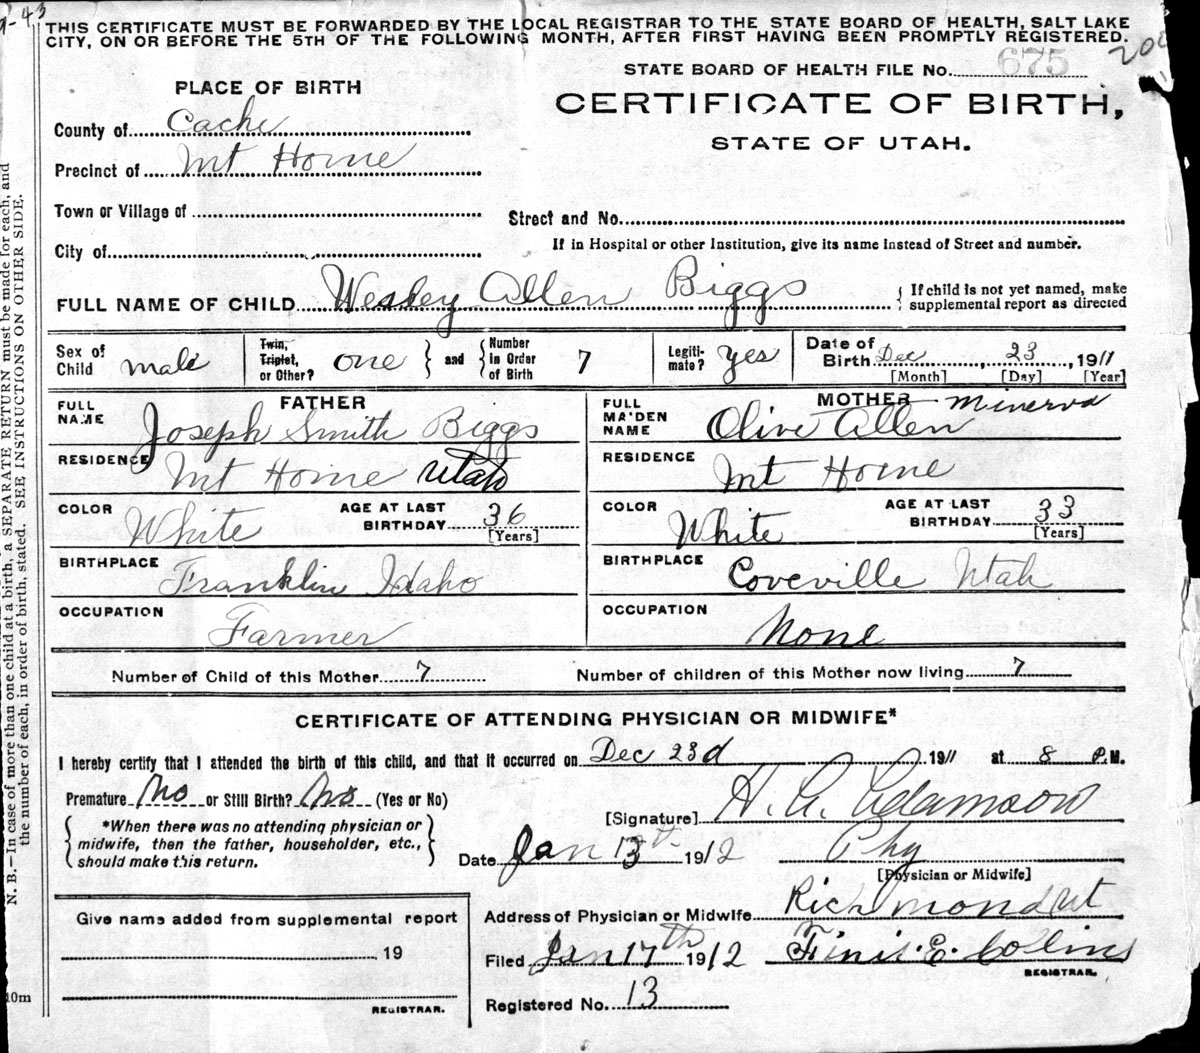 9-43
THIS CERTIFICATE MUST BE FORWARDED BY THE LOCAL REGISTRAR TO THE STATE BOARD OF HEALTH, SALT LAKE
CITY, ON OR BEFORE THE 5TH OF THE FOLLOWING MONTH, AFTER FIRST HAVING BEEN PROMPTLY REGISTERED.
STATE BOARD OF HEALTH FILE No. 675
PLACE OF BIRTH
CERTIFICATE OF BIRTH,
STATE OF UTAH.
County of Cache
Precinct of Mt Home
Town or Village of
Street and No.
City of
If in Hospital or other Institution, give its name instead of Street and number.
FULL NAME OF CHILD Wesley Allen Biggs
{ If child is not yet named, make
supplemental report as directed
Sex of Child male
Twin, Triplet, or Other? one } and { Number in Order of Birth 7
Legiti-mate? yes
Date of Birth Dec 23, 1911
[Month] [Day] [Year]
FATHER
FULL NAME Joseph Smith Biggs
RESIDENCE Mt Home Utah
COLOR White
AGE AT LAST BIRTHDAY 36
[Years]
BIRTHPLACE Franklin Idaho
OCCUPATION Farmer
MOTHER Minerva
FULL MAIDEN NAME Olive Allen
RESIDENCE Mt Home
COLOR White
AGE AT LAST BIRTHDAY 33
[Years]
BIRTHPLACE Coveville Utah
OCCUPATION None
Number of Child of this Mother 7
Number of children of this Mother now living 7
CERTIFICATE OF ATTENDING PHYSICIAN OR MIDWIFE*
I hereby certify that I attended the birth of this child, and that it occurred on Dec 23d 1911 at 8 P.M.
Premature No or Still Birth? No (Yes or No)
{ *When there was no attending physician or
midwife, then the father, householder, etc.,
should make this return. }
[Signature] H. A. Adamson
Date Jan 13th 1912 Phy
[Physician or Midwife]
Address of Physician or Midwife Richmond Ut
Filed Jan 17th 1912 Finis. E. Collins
REGISTRAR.
Registered No. 13
Give name added from supplemental report
19
REGISTRAR.
N. B.—In case of more than one child at a birth, a SEPARATE RETURN must be made for each, and
the number of each, in order of birth, stated. SEE INSTRUCTIONS ON OTHER SIDE.
10m